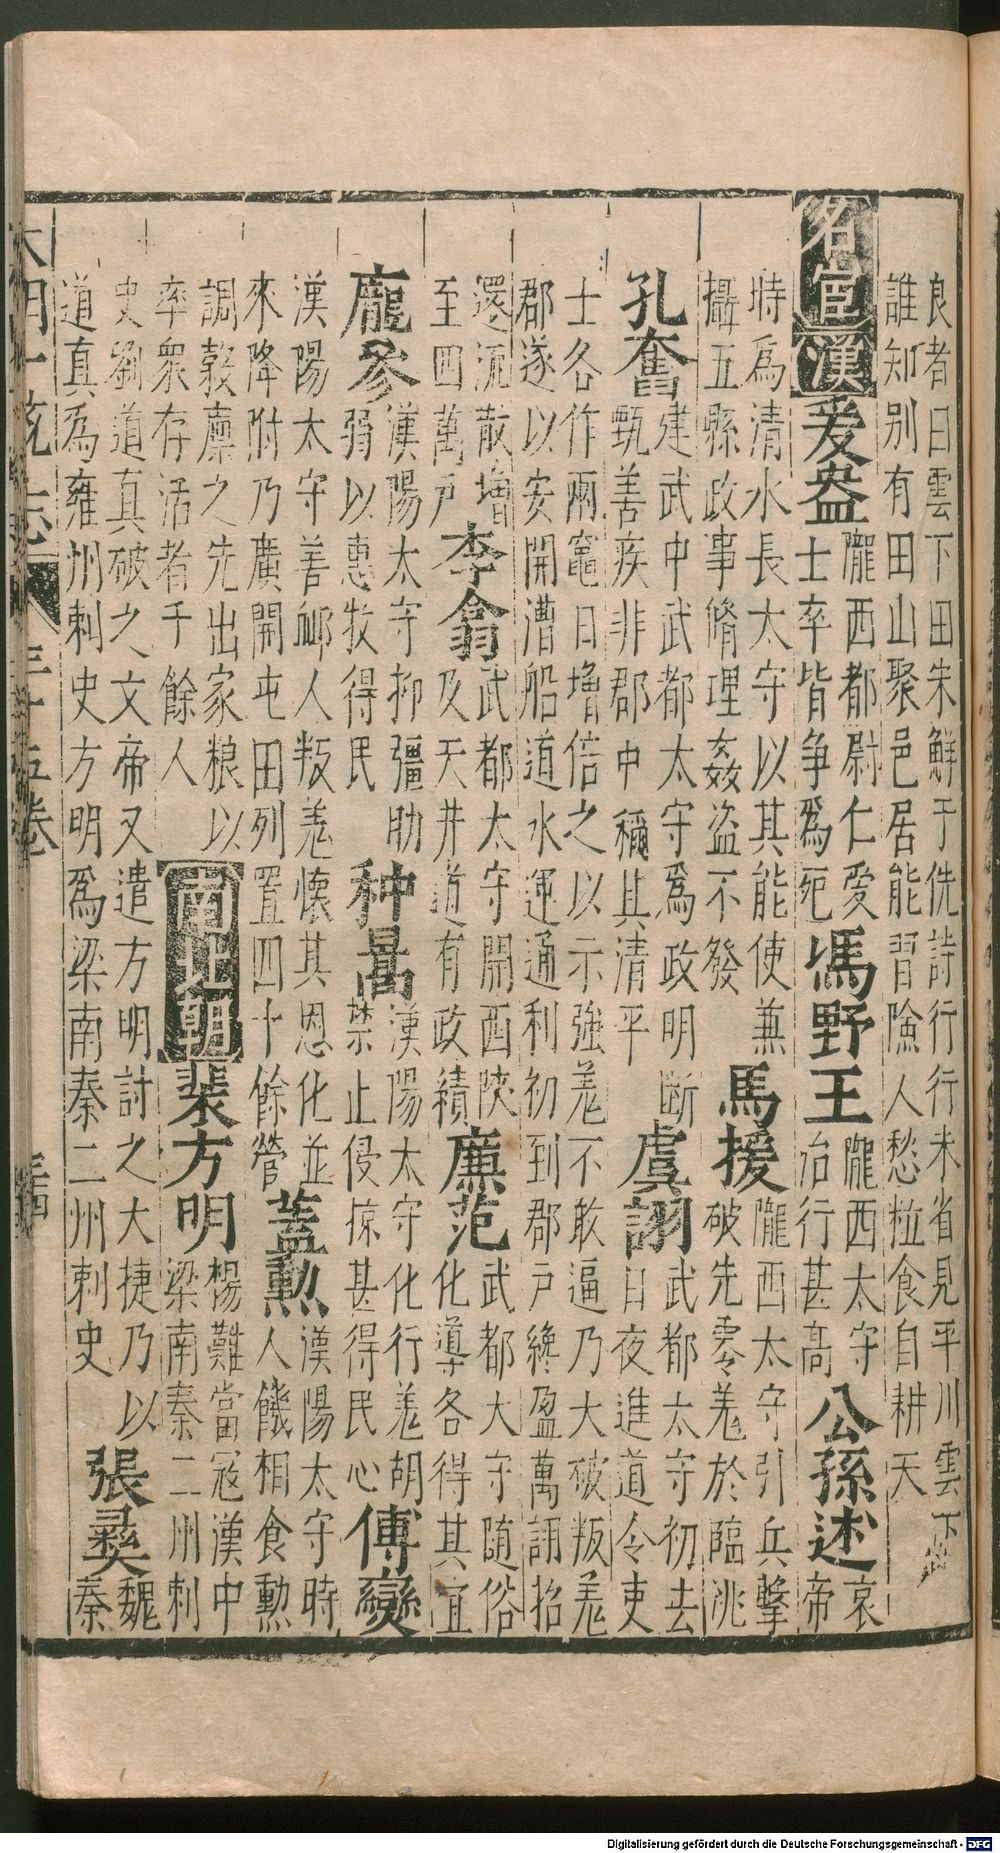 良者曰雲下田朱鮮于侁詩行行未省見平川雲下
誰知別有田山聚邑居能習險人愁粒食自耕天
名宦
漢
爰盎
隴西都尉仁愛
士卒皆争爲死
馮野王
隴西太守
治行甚高
公孫述
哀
帝
時爲清水長太守以其能使兼
攝五縣政事脩理姦盜不發
馬援
隴西太守引兵擊
破先零羌於臨洮
孔奮
建武中武都太守爲政明斷
甄善疾非郡中稱其清平
虞詡
武都太守初去
日夜進道令吏
士各作兩竈日增倍之以示強羌不敢逼乃大破叛羌
郡遂以安開漕船道水運通利初到郡戶纔盈萬詡招
還流散增
至四萬戶
李翕
武都太守開西陝
及天井道有政績
廉范
武都大守随俗
化導各得其宜
龐參
漢陽太守抑彊助
弱以惠牧得民
种暠
漢陽太守化行羌胡
禁止侵掠甚得民心
傅變
漢陽太守善䘏人叛羌懷其恩化並
來降附乃廣開屯田列置四十餘營
蓋勲
漢陽太守時
人饑相食勲
調穀廪之先出家粮以
率衆存活者千餘人
南北朝
裴方明
楊難當冦漢中
梁南秦二州刺
史劉道真破之文帝又遣方明討之大捷乃以
道真爲雍州刺史方明爲梁南秦二州刺史
張彝
魏
秦
大明一統志 三十五卷
Digitalisierung gefördert durch die Deutsche Forschungsgemeinschaft - DFG